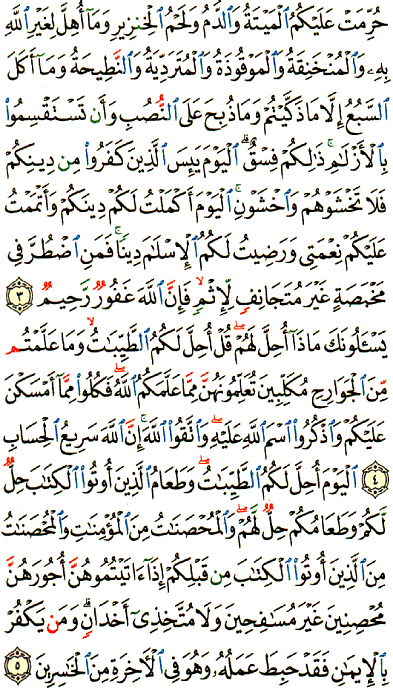 حُرِّمَتْ عَلَيْكُمُ ٱلْمَيْتَةُ وَٱلدَّمُ وَلَحْمُ ٱلْخِنزِيرِ وَمَآ أُهِلَّ لِغَيْرِ ٱللَّهِ
بِهِۦ وَٱلْمُنْخَنِقَةُ وَٱلْمَوْقُوذَةُ وَٱلْمُتَرَدِّيَةُ وَٱلنَّطِيحَةُ وَمَآ أَكَلَ
ٱلسَّبُعُ إِلَّا مَا ذَكَّيْتُمْ وَمَا ذُبِحَ عَلَى ٱلنُّصُبِ وَأَن تَسْتَقْسِمُوا۟
بِٱلْأَزْلَٰمِ ۚ ذَٰلِكُمْ فِسْقٌ ۗ ٱلْيَوْمَ يَئِسَ ٱلَّذِينَ كَفَرُوا۟ مِن دِينِكُمْ
فَلَا تَخْشَوْهُمْ وَٱخْشَوْنِ ۚ ٱلْيَوْمَ أَكْمَلْتُ لَكُمْ دِينَكُمْ وَأَتْمَمْتُ
عَلَيْكُمْ نِعْمَتِى وَرَضِيتُ لَكُمُ ٱلْإِسْلَٰمَ دِينًا ۚ فَمَنِ ٱضْطُرَّ فِى
مَخْمَصَةٍ غَيْرَ مُتَجَانِفٍ لِّإِثْمٍ ۙ فَإِنَّ ٱللَّهَ غَفُورٌ رَّحِيمٌ ٣
يَسْـَٔلُونَكَ مَاذَآ أُحِلَّ لَهُمْ ۖ قُلْ أُحِلَّ لَكُمُ ٱلطَّيِّبَٰتُ ۙ وَمَا عَلَّمْتُم
مِّنَ ٱلْجَوَارِحِ مُكَلِّبِينَ تُعَلِّمُونَهُنَّ مِمَّا عَلَّمَكُمُ ٱللَّهُ ۖ فَكُلُوا۟ مِمَّآ أَمْسَكْنَ
عَلَيْكُمْ وَٱذْكُرُوا۟ ٱسْمَ ٱللَّهِ عَلَيْهِ ۖ وَٱتَّقُوا۟ ٱللَّهَ ۚ إِنَّ ٱللَّهَ سَرِيعُ ٱلْحِسَابِ
٤ ٱلْيَوْمَ أُحِلَّ لَكُمُ ٱلطَّيِّبَٰتُ ۖ وَطَعَامُ ٱلَّذِينَ أُوتُوا۟ ٱلْكِتَٰبَ حِلٌّ
لَّكُمْ وَطَعَامُكُمْ حِلٌّ لَّهُمْ ۖ وَٱلْمُحْصَنَٰتُ مِنَ ٱلْمُؤْمِنَٰتِ وَٱلْمُحْصَنَٰتُ
مِنَ ٱلَّذِينَ أُوتُوا۟ ٱلْكِتَٰبَ مِن قَبْلِكُمْ إِذَآ ءَاتَيْتُمُوهُنَّ أُجُورَهُنَّ
مُحْصِنِينَ غَيْرَ مُسَٰفِحِينَ وَلَا مُتَّخِذِىٓ أَخْدَانٍ ۗ وَمَن يَكْفُرْ
بِٱلْإِيمَٰنِ فَقَدْ حَبِطَ عَمَلُهُۥ وَهُوَ فِى ٱلْءَاخِرَةِ مِنَ ٱلْخَٰسِرِينَ ٥